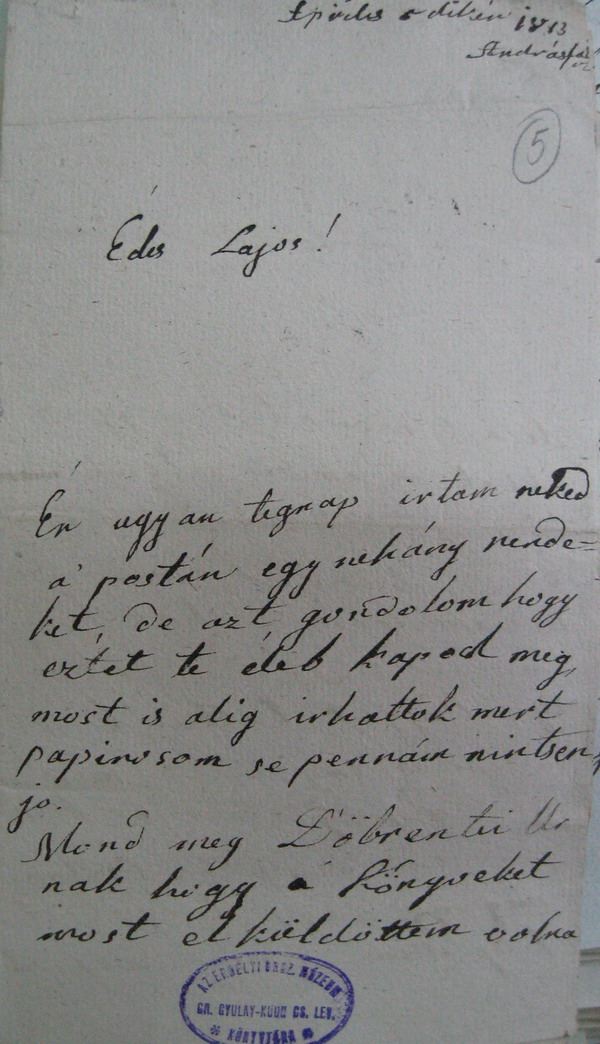 Április 5dikén 1813
András
5
Édes Lajos!
Én ugyan tegnap irtam neked
a' postán egy nehány rende=
ket, de azt gondolom hogy
eztet te éléb kapod meg,
most is alig irhattok mert
papirosom se pennám nintsen
jo.
Mond meg Döbrentei Ur
nak hogy a' könyveket
most el küldöttem volna
AZ ERDÉLYI ORSZ. MÚZEUM
GR. GYULAY-KUUN CS. LEV.
* KÖNYVTÁRA *